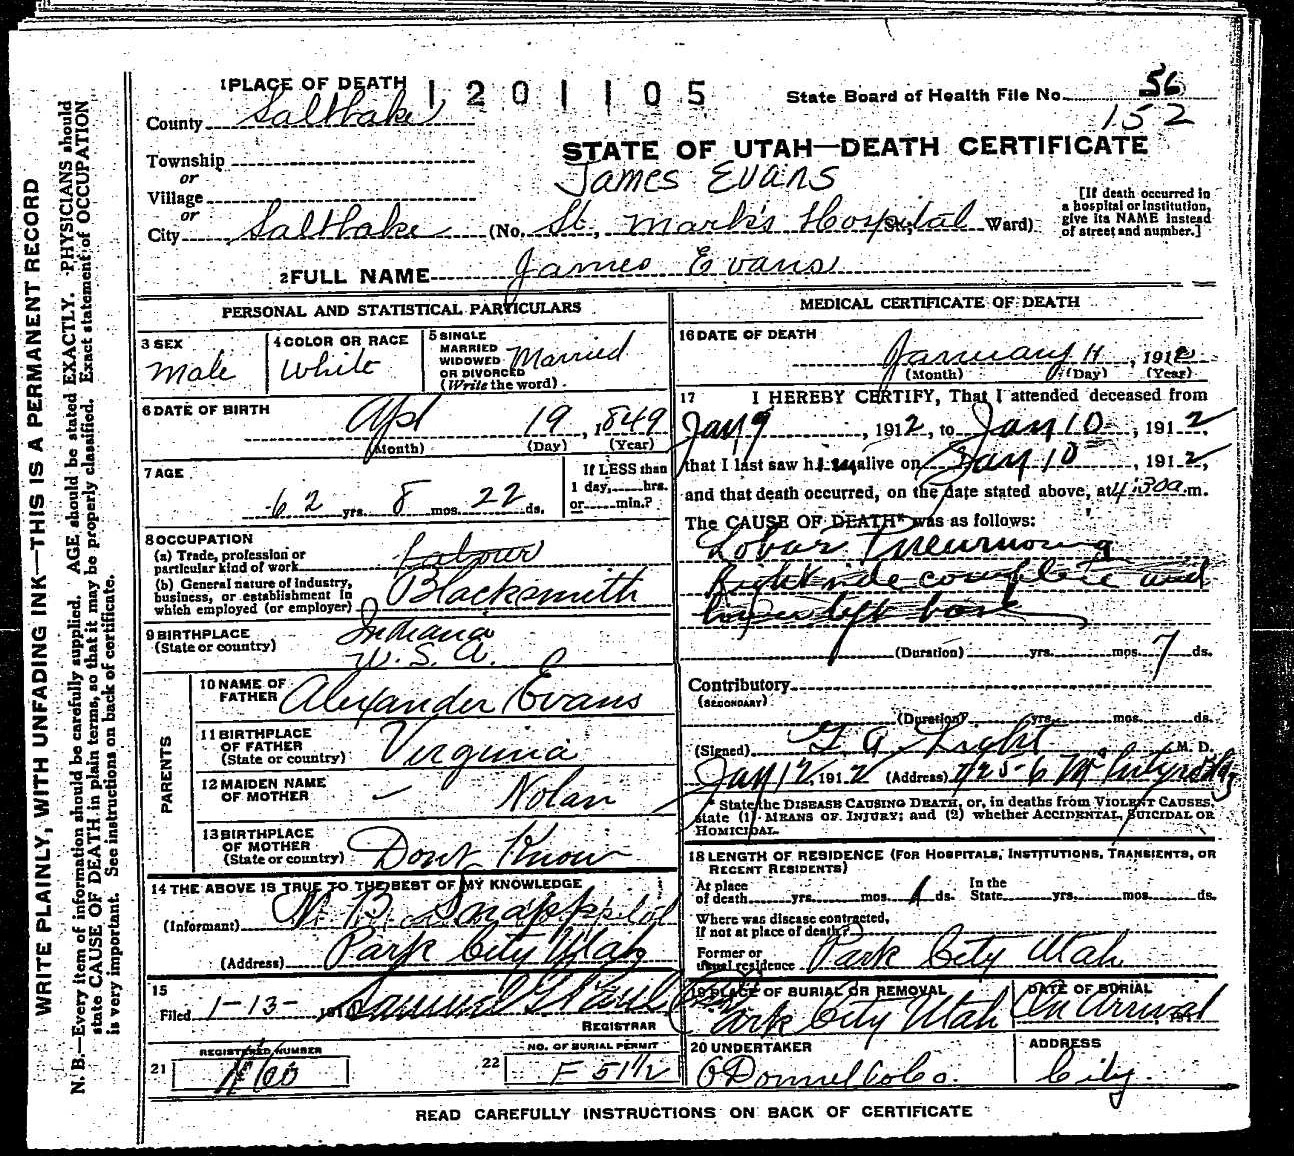 WRITE PLAINLY, WITH UNFADING INK—THIS IS A PERMANENT RECORD
N. B.—Every item of information should be carefully supplied. AGE should be stated EXACTLY. PHYSICIANS should
state CAUSE OF DEATH in plain terms, so that it may be properly classified. Exact statement of OCCUPATION
is very important. See instructions on back of certificate.
1 PLACE OF DEATH
1201105
State Board of Health File No. 56
152
County Salt Lake
STATE OF UTAH—DEATH CERTIFICATE
Township
James Evans
or
Village
or
City Salt Lake (No. St. Mark's Hospital St.; Ward)
[If death occurred in
a hospital or institution,
give its NAME instead
of street and number.]
2 FULL NAME James Evans
PERSONAL AND STATISTICAL PARTICULARS
3 SEX
Male
4 COLOR OR RACE
White
5 SINGLE
MARRIED
WIDOWED
OR DIVORCED
(Write the word)
Married
6 DATE OF BIRTH
Apl 19, 1849
(Month) (Day) (Year)
7 AGE
62 yrs. 8 mos. 22 ds.
If LESS than
1 day, hrs.
or min.?
8 OCCUPATION
(a) Trade, profession or
particular kind of work labour
(b) General nature of industry,
business, or establishment in
which employed (or employer) Blacksmith
9 BIRTHPLACE
(State or country)
Indiana
U.S.A.
PARENTS
10 NAME OF
FATHER Alexander Evans
11 BIRTHPLACE
OF FATHER
(State or country) Virginia
12 MAIDEN NAME
OF MOTHER — Nolan
13 BIRTHPLACE
OF MOTHER
(State or country) Dont Know
14 THE ABOVE IS TRUE TO THE BEST OF MY KNOWLEDGE
(Informant) M. B. Snapp
(Address) Park City Utah
15
Filed 1-13-, 191
REGISTRAR
21
REGISTERED NUMBER
22
NO. OF BURIAL PERMIT
F 5112
MEDICAL CERTIFICATE OF DEATH
16 DATE OF DEATH
January 11, 1912
(Month) (Day) (Year)
17
I HEREBY CERTIFY, That I attended deceased from
Jan 9, 1912, to Jan 10, 1912,
that I last saw him alive on Jan 10, 1912,
and that death occurred, on the date stated above, at 4:30a.m.
The CAUSE OF DEATH* was as follows:
Lobar Pneumonia
Right side complete and
left
(Duration) yrs. mos. 7 ds.
Contributory
(SECONDARY)
(Duration) yrs. mos. ds.
(Signed) G A M. D.
Jan 12 1912 (Address)
* State the DISEASE CAUSING DEATH, or, in deaths from VIOLENT CAUSES,
state (1) MEANS OF INJURY; and (2) whether ACCIDENTAL, SUICIDAL OR
HOMICIDAL.
18 LENGTH OF RESIDENCE (FOR HOSPITALS, INSTITUTIONS, TRANSIENTS, OR
RECENT RESIDENTS)
At place
of death yrs. mos. 1 ds.
In the
State yrs. mos. ds.
Where was disease contracted,
if not at place of death?
Former or
usual residence Park City Utah
19 PLACE OF BURIAL OR REMOVAL
Park City Utah
DATE OF BURIAL
On Arrival 191
20 UNDERTAKER
O'Donnell & Co.
ADDRESS
City
READ CAREFULLY INSTRUCTIONS ON BACK OF CERTIFICATE